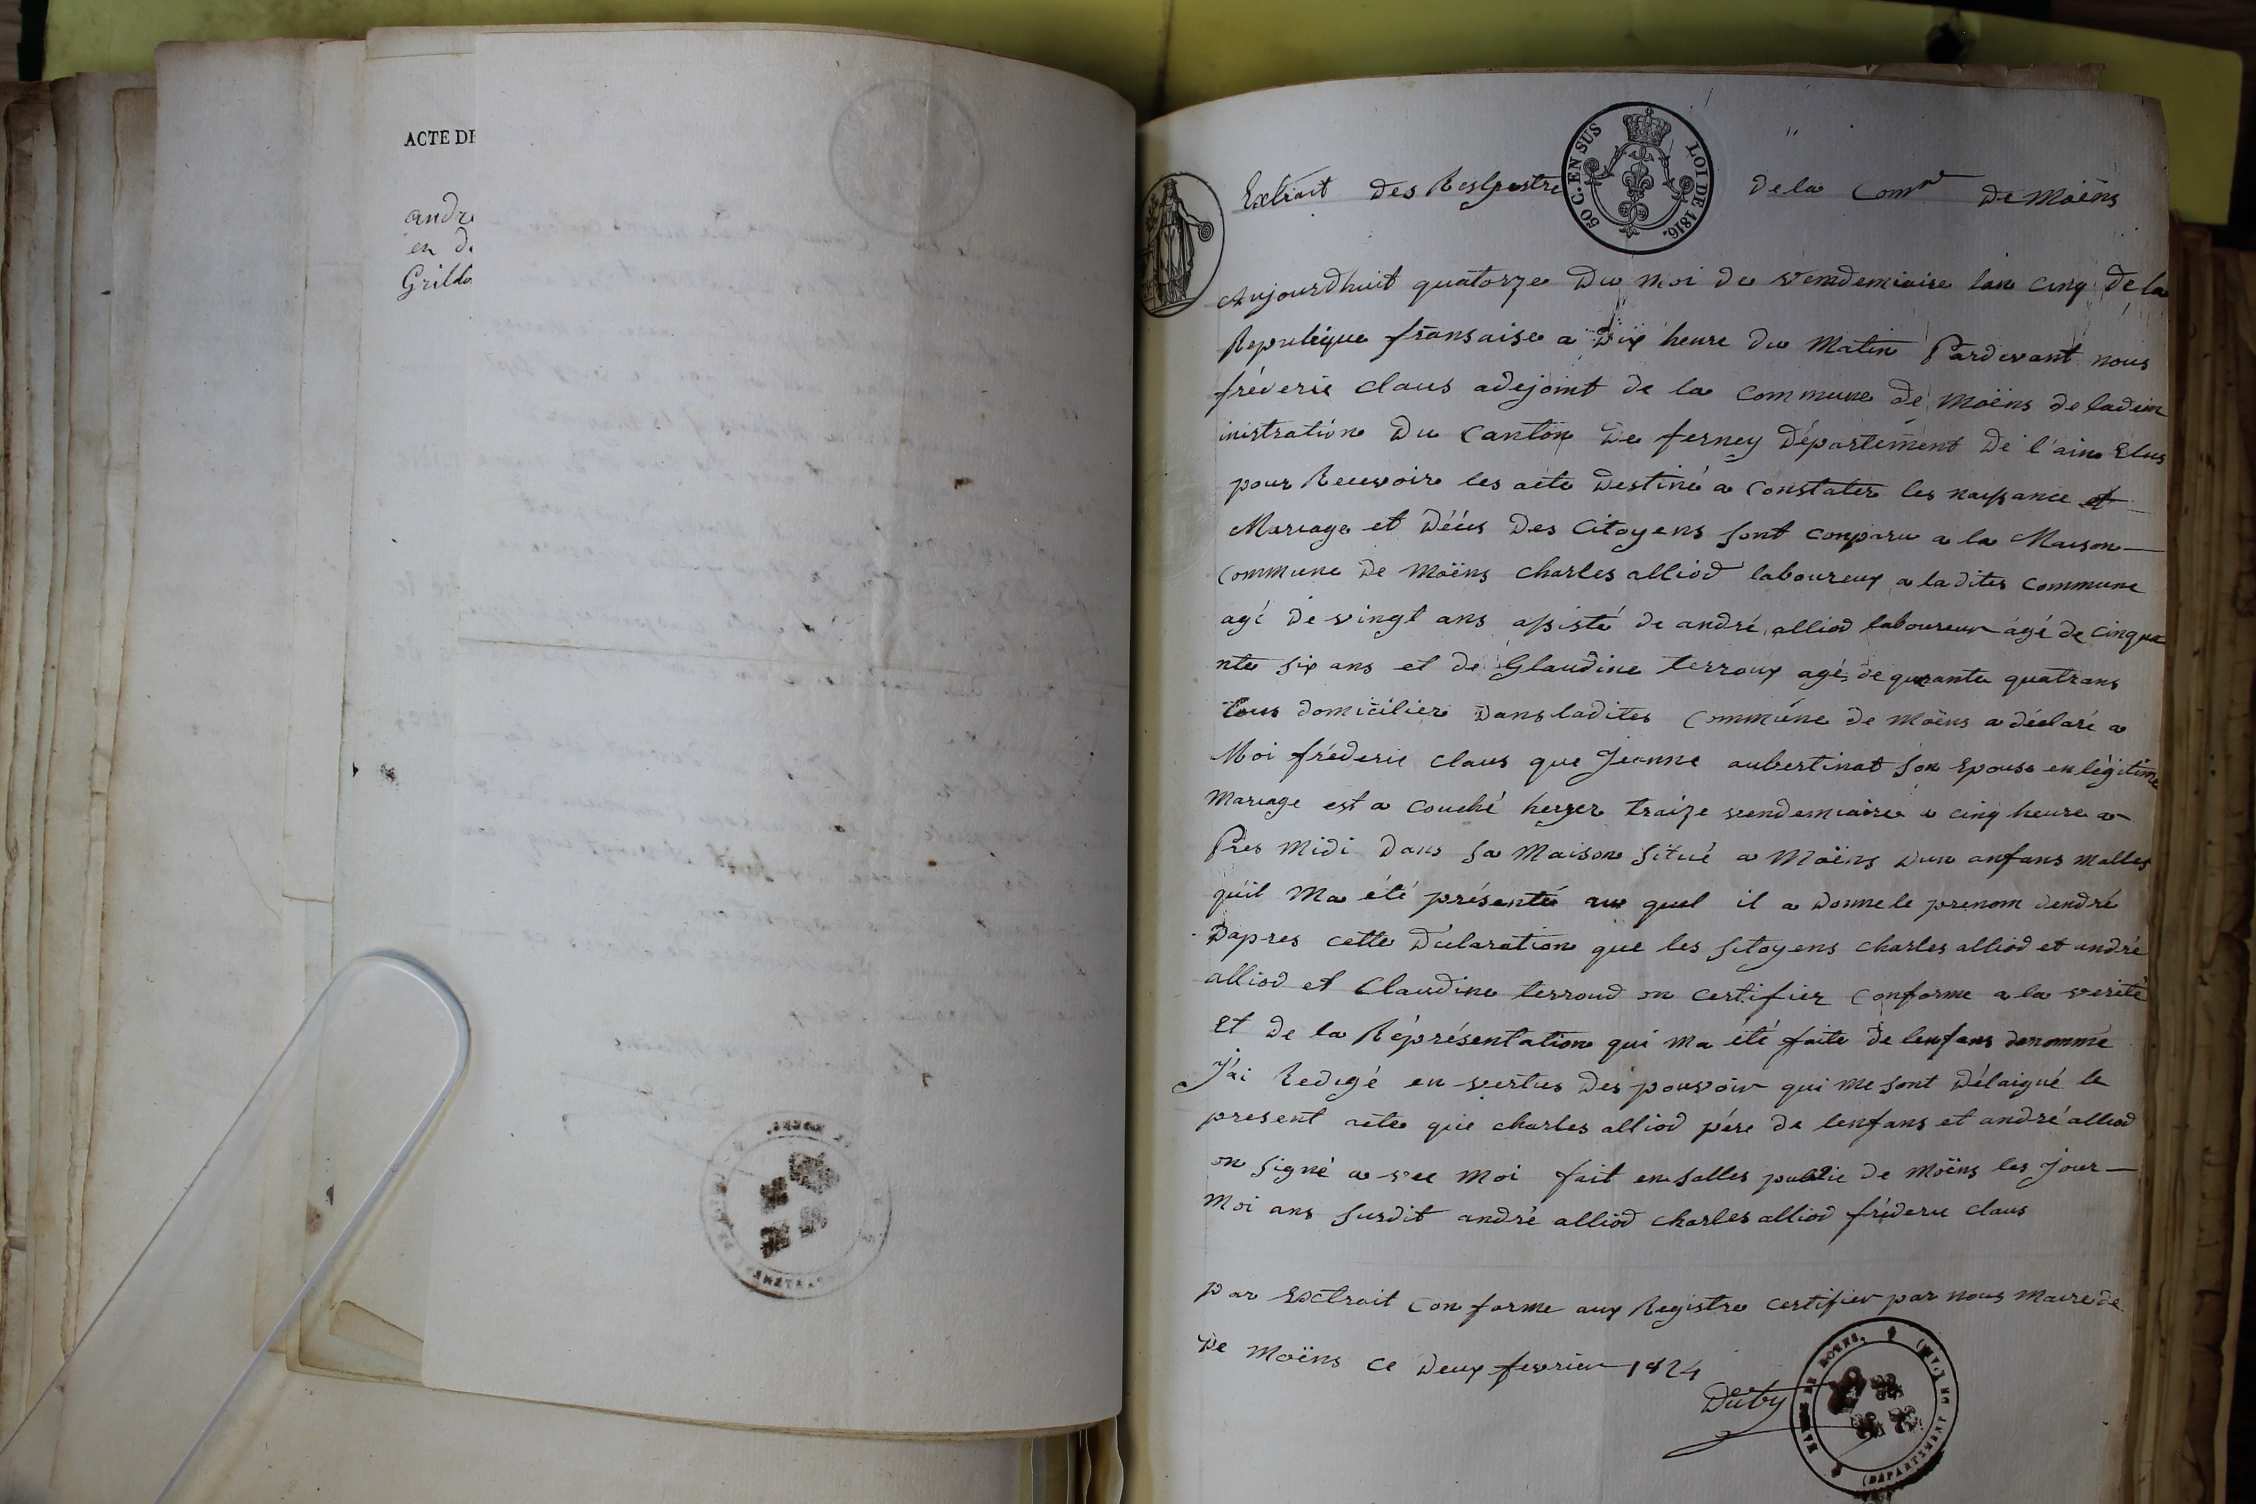 ACTE DE
andr
en d
Grildo
50 C. EN SUS LOI DE 1816.
Extrait des Reslgestre de la Comne de Moëns
Aujourdhuit quatorze du moi de vendemiaire lan cinq de la
Republique fransaise a dix heure du Matin Pardevant nous
fréderic claus adejoint de la commune de moëns de ladem
inistration du canton de ferney Département de l'ain Elus
pour Recevoir les acte destiné a constater les naissance et
Mariage et Décés des citoyens sont conparu a la Maison
commune de moëns charles alliod laboureux a ladites commune
agé de vingt ans assisté de andré alliod laboureur agé de cinqua
nte six ans et de Glaudine terroux agé de quarante quatrans
tous domicilier dans ladites commune de moëns a déclaré a
Moi fréderic claus que Jeanne aubertinat son Epouse en légitime
mariage est a couché heyer traize vendemiaire a cinq heure a
Près midi dans sa maison situé a Moëns dun anfans malles
quil Ma été présenté au quel il a donne le prenom dendré
Dapres cette déclaration que les sitoyens charles alliod et andré
alliod et Claudine terroud on certifier conforme a la verité
Et de la Réprésentation qui ma été faite de lenfans denommé
J'ai Redigé en vertus des pouvoir qui me sont délaigué le
present acte que charles alliod pére de lenfans et andré alliod
on signé a vec moi fait en salles public de moëns les jour
moi ans susdit andré alliod charles alliod fréderic claus
par Extrait conforme aux Registre certifier par nous maire de
de moëns ce deux fevrier 1824
Duby
MAIRIE DE MOENS, (DÉPARTEMENT DE L'AIN)